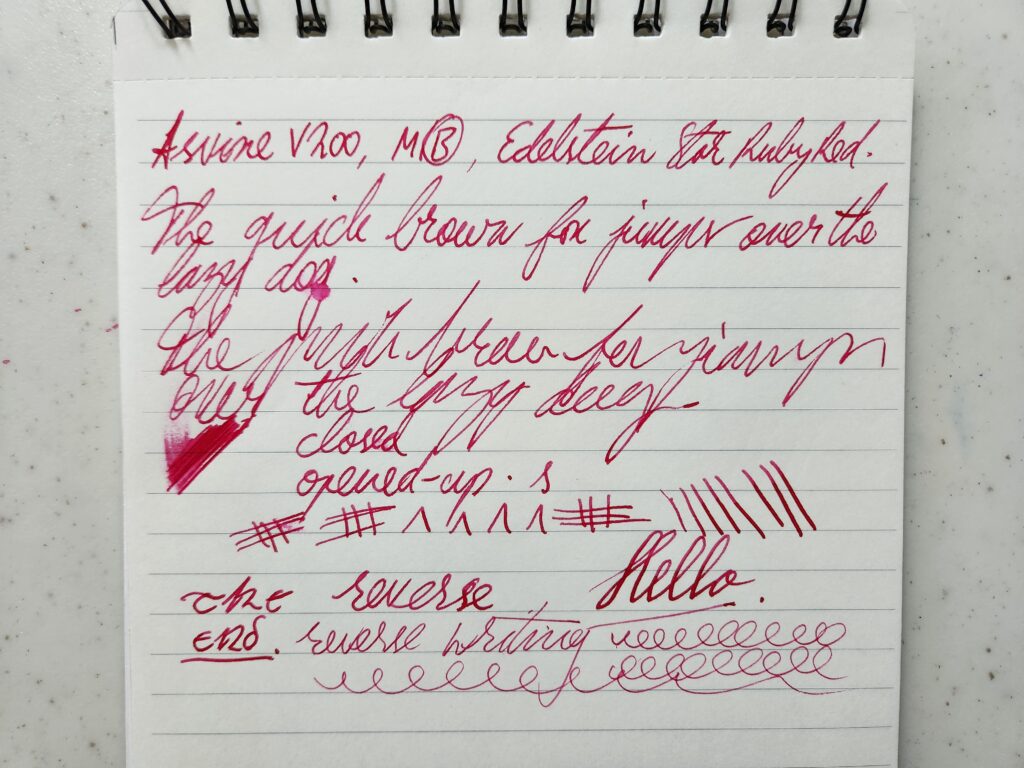 Asvine V200, M(B), Edelstein Star Ruby Red.
The quick brown fox jumps over the
lazy dog.
The quick brown fox jumps
over the lazy dog
closed
opened-up. s
the reverse, Hello.
end. reverse writing